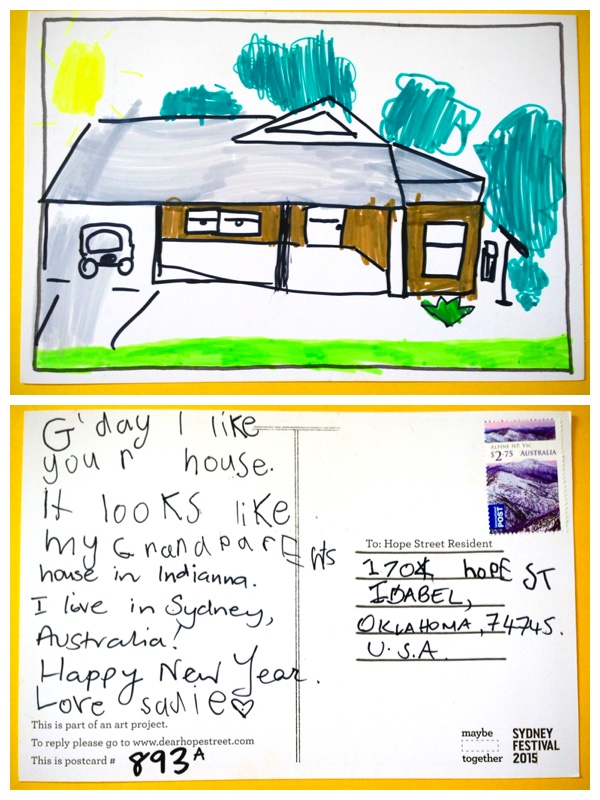 G'day I like
your house.
It looks like
my Grandparents
house in Indianna.
I live in Sydney,
Australia!
Happy New Year.
Love sadie♡
This is part of an art project.
To reply please go to www.dearhopestreet.com
This is postcard # 893A
ALPINE NP, VIC
$2.75 AUSTRALIA
POST
To: Hope Street Resident
1704 hOPE ST
IDABEL,
OKLAHOMA, 74745.
U.S.A.
maybe
together
SYDNEY
FESTIVAL
2015